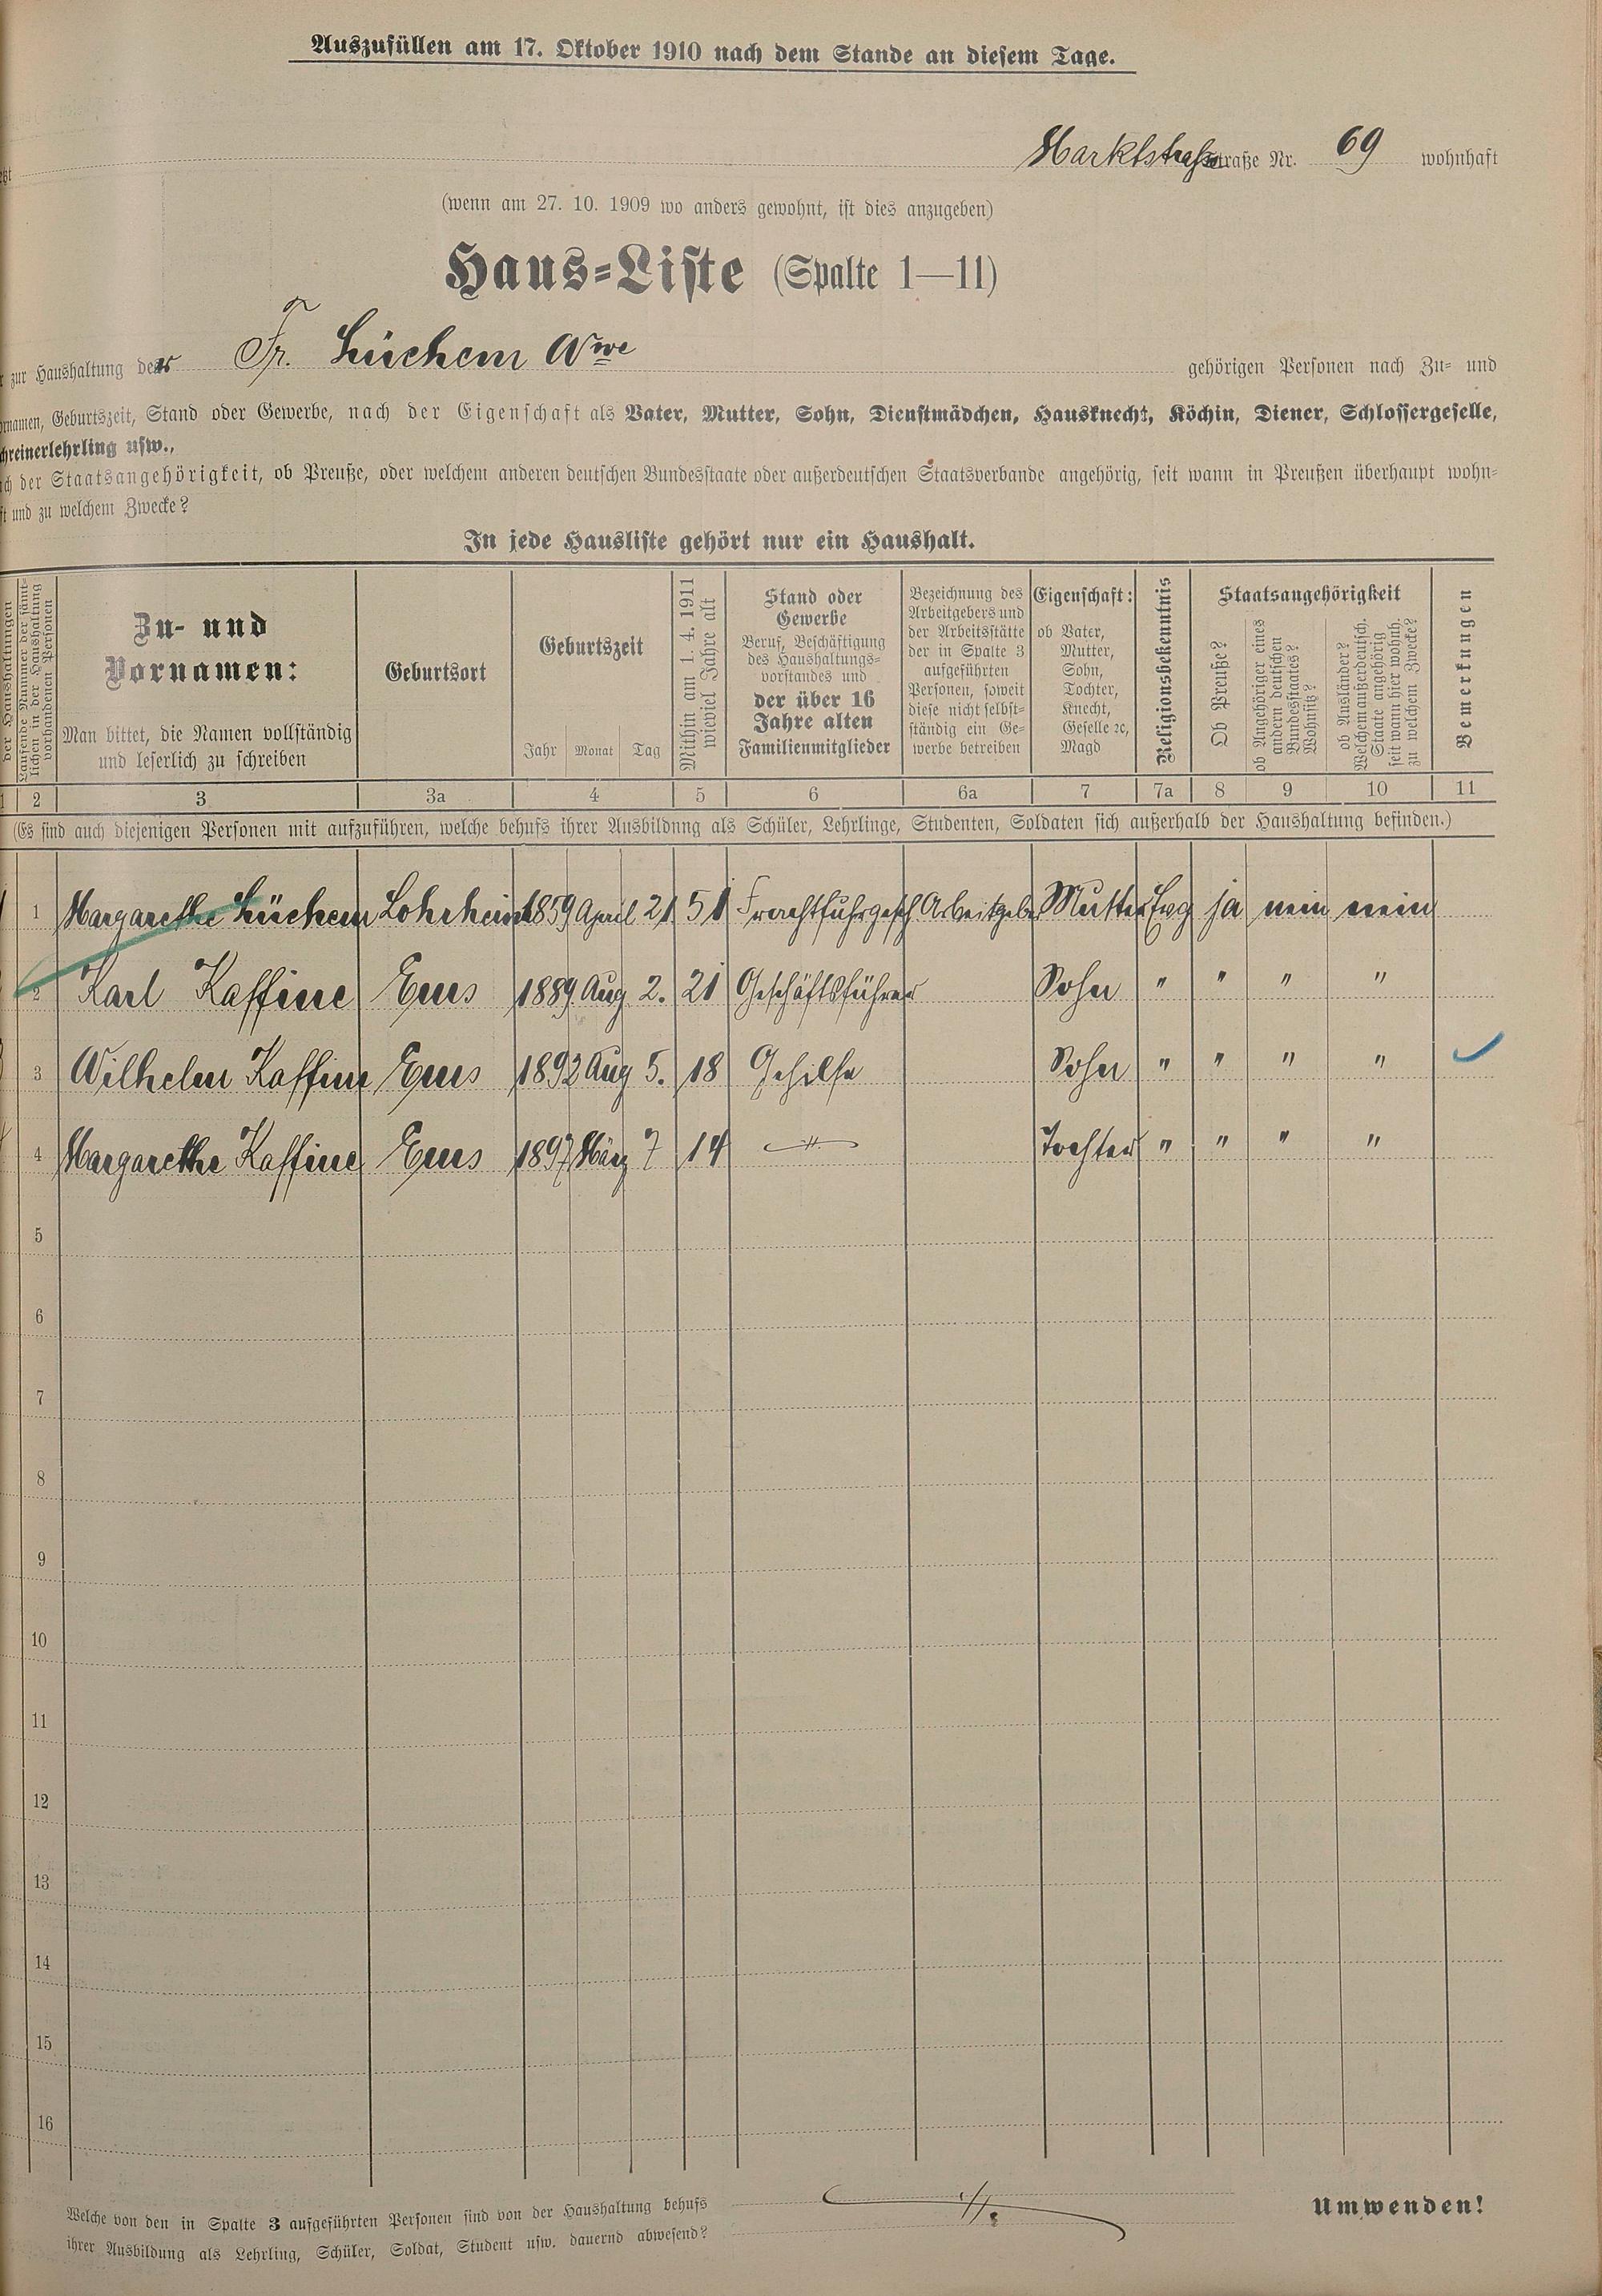 Auszufüllen am 17. Oktober 1910 nach dem Stande an diesem Tage.
Marktstrasse straße Nr. 69 wohnhaft
(wenn am 27. 10. 1909 wo anders gewohnt, ist dies anzugeben)
Haus-Liste (Spalte 1—11)
zur Haushaltung der Fr. Lüchem Wwe gehörigen Personen nach Zu- und
namen, Geburtszeit, Stand oder Gewerbe, nach der Eigenschaft als Vater, Mutter, Sohn, Dienstmädchen, Hausknecht, Köchin, Diener, Schlossergeselle,
reinerlehrling usw.,
der Staatsangehörigkeit, ob Preuße, oder welchem anderen deutschen Bundesstaate oder außerdeutschen Staatsverbande angehörig, seit wann in Preußen überhaupt wohn-
ft und zu welchem Zwecke?
In jede Hausliste gehört nur ein Haushalt.
der Haushaltungen
Laufende Nummer der sämt-
lichen in der Haushaltung
vorhandenen Personen
Zu- und
Vornamen:
Man bittet, die Namen vollständig
und leserlich zu schreiben
Geburtsort
Geburtszeit
Jahr Monat Tag
Mithin am 1. 4. 1911
wieviel Jahre alt
Stand oder
Gewerbe
Beruf, Beschäftigung
des Haushaltungs-
vorstandes und
der über 16
Jahre alten
Familienmitglieder
Bezeichnung des
Arbeitgebers und
der Arbeitsstätte
der in Spalte 3
aufgeführten
Personen, soweit
diese nicht selbst-
ständig ein Ge-
werbe betreiben
Eigenschaft:
ob Vater,
Mutter,
Sohn,
Tochter,
Knecht,
Geselle ꝛc,
Magd
Religionsbekenntnis
Staatsangehörigkeit
Ob Preuße?
ob Angehöriger eines
andern deutschen
Bundesstaates?
Wohnsitz?
ob Ausländer?
Welchem außerdeutsch.
Staate angehörig
seit wann hier wohnh.
zu welchem Zwecke?
Bemerkungen
1 2 3 3a 4 5 6 6a 7 7a 8 9 10 11
(Es sind auch diejenigen Personen mit aufzuführen, welche behufs ihrer Ausbildung als Schüler, Lehrlinge, Studenten, Soldaten sich außerhalb der Haushaltung befinden.)
1 Margarethe Lüchem Lohrheim 1859 April 21 51 Frachtfuhrgesch. Arbeitgeber Mutter Evg ja nein nein
2 Karl Kaffine Ems 1889 Aug 2. 21 Geschäftsführer Sohn " " " "
3 Wilhelm Kaffine Ems 1892 Aug 5. 18 Gehilfe Sohn " " " "
4 Margarethe Kaffine Ems 1897 März 7 14 — " — Tochter " " " "
5
6
7
8
9
10
11
12
13
14
15
16
Welche von den in Spalte 3 aufgeführten Personen sind von der Haushaltung behufs
ihrer Ausbildung als Lehrling, Schüler, Soldat, Student usw. dauernd abwesend?
Umwenden!